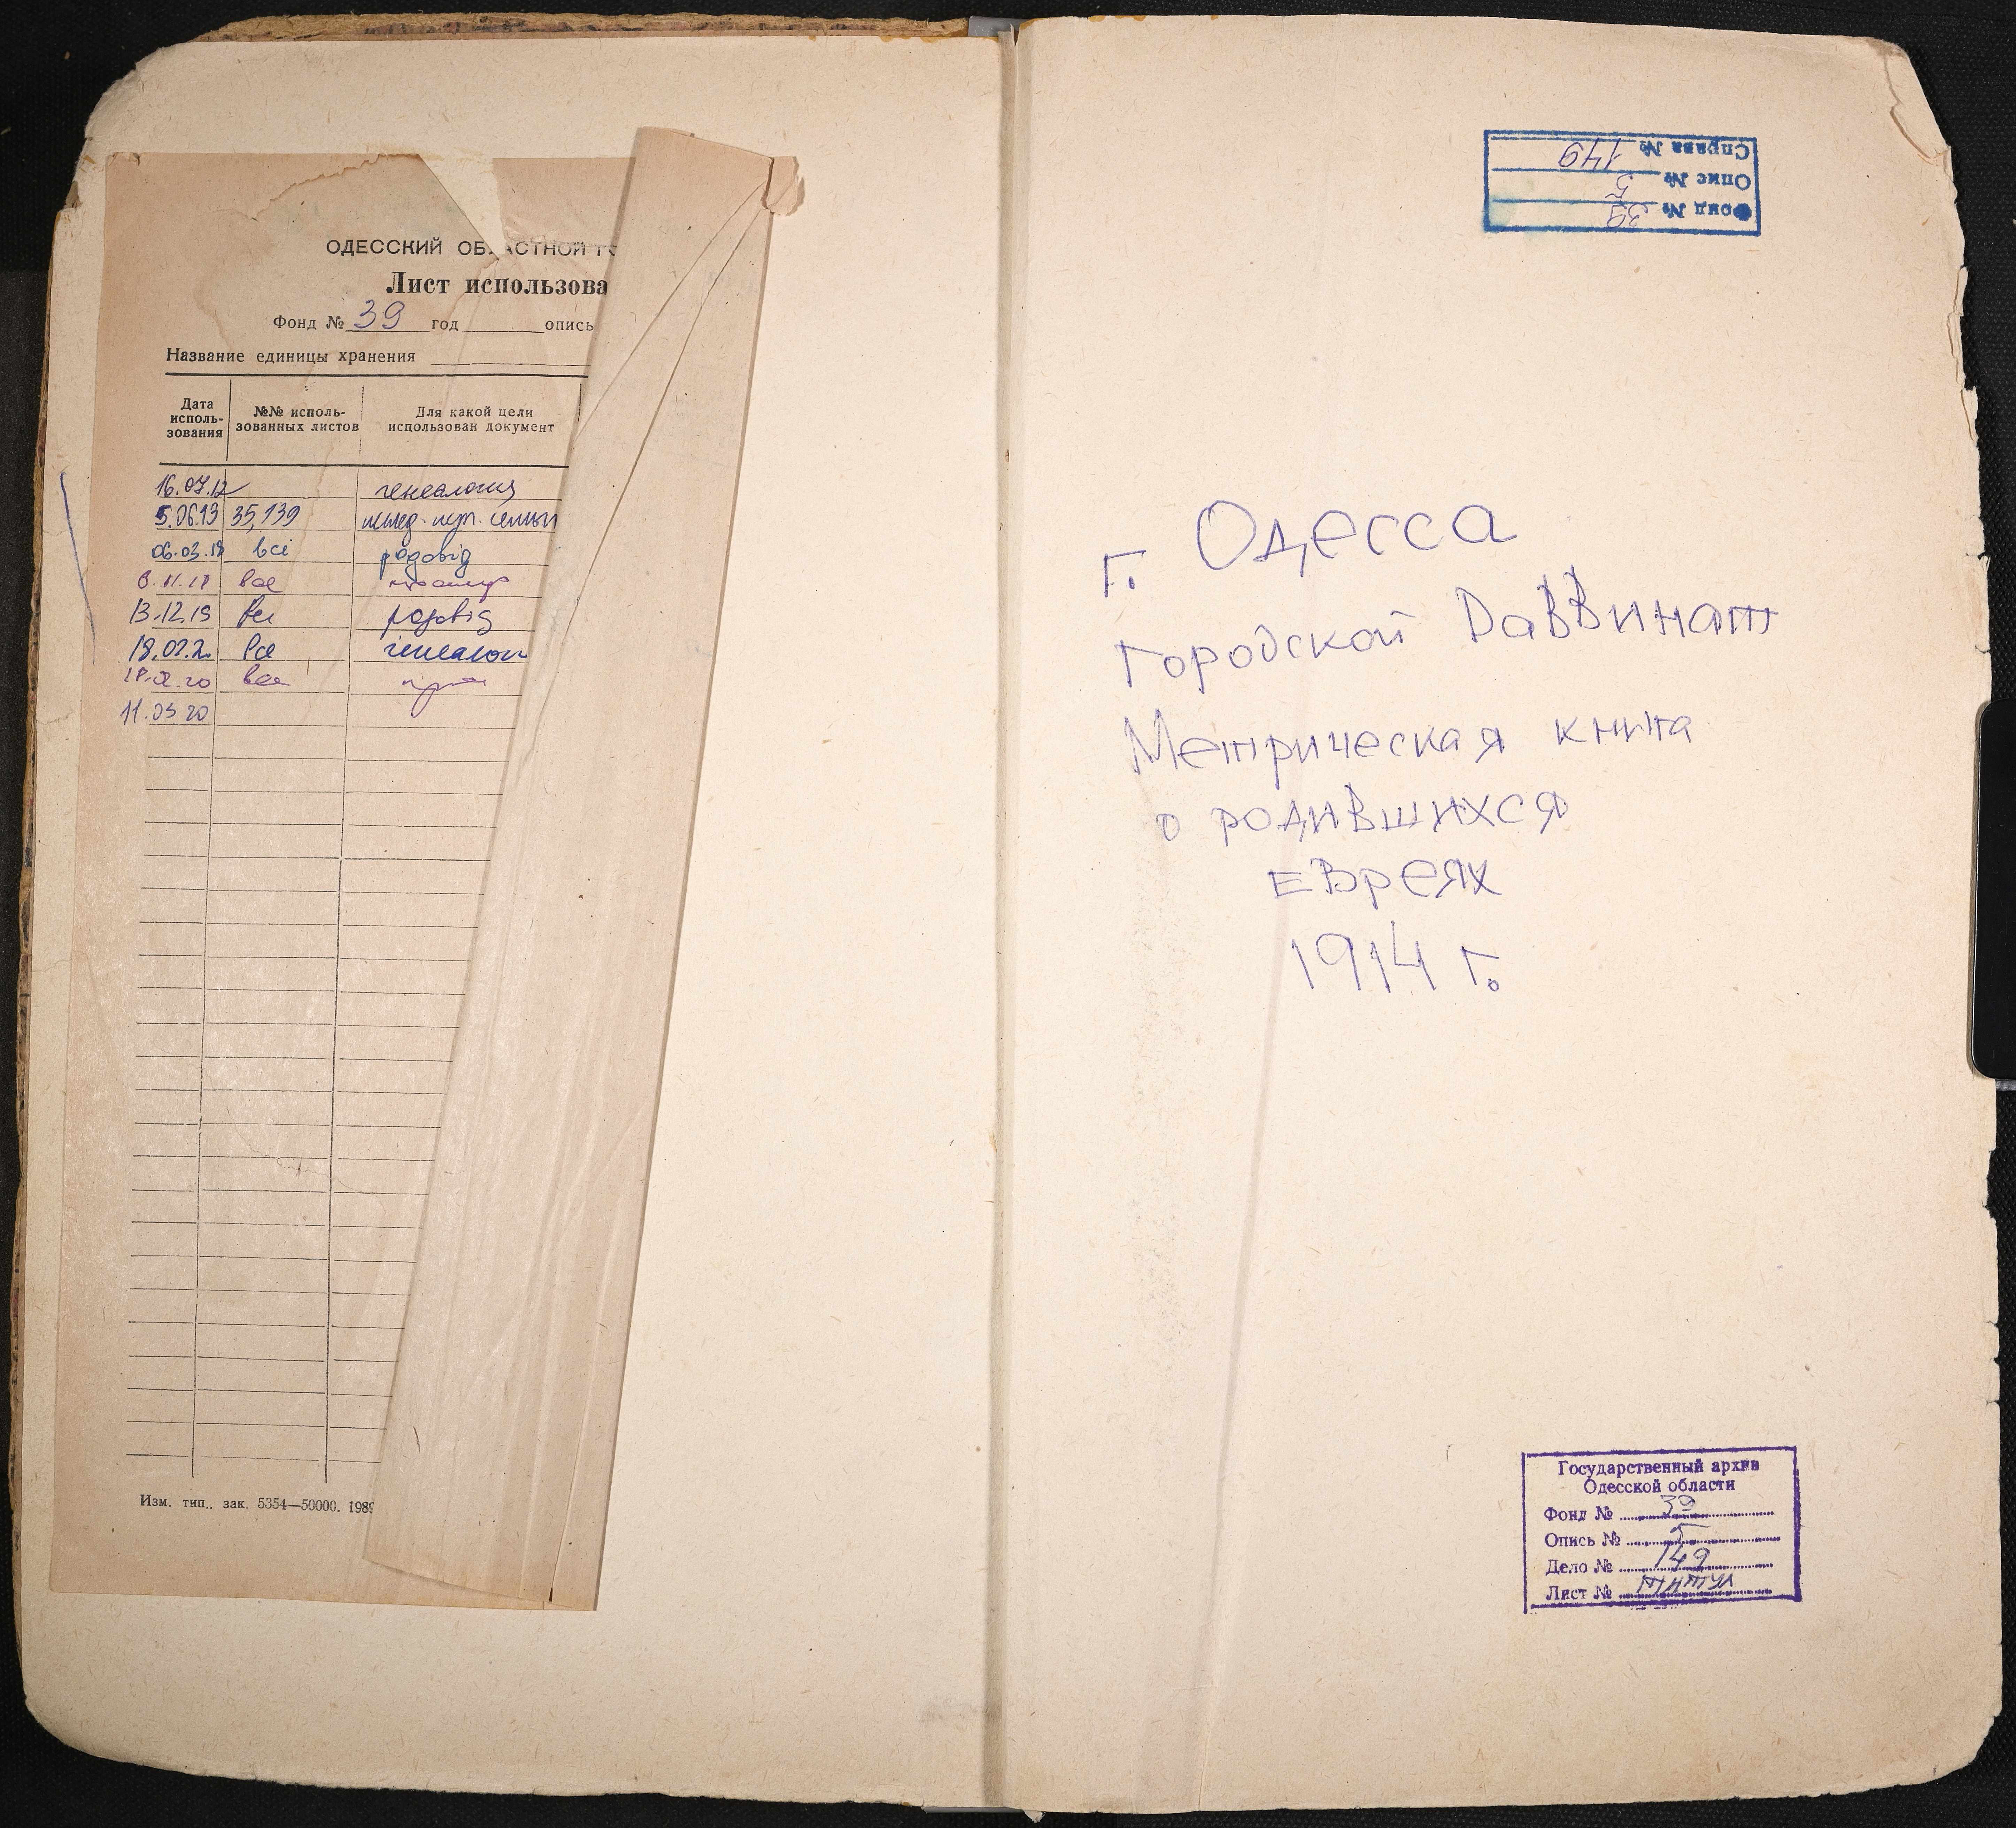 ОДЕССКИЙ ОБЛАСТНОЙ ГО
Лист использова
Фонд № 39 год опись
Название единицы хранения
Дата исполь-зования №№ исполь-зованных листов Для какой цели использован документ
16.07.12 генеалогия
5.06.13 35,139
06.03.18 всі родовід
8.11.18 все
13.12.19 всі родовід
18.02.2 все генеалог
18.02.20 все
11.03 20
Изм. тип., зак. 5354—50000. 1989
Фонд № 39
Опис № 5
Справа № 149
г. Одесса
Городской Раввинат
Метрическая книга
о родившихся
евреях
1914 г.
Государственный архив
Одесской области
Фонд № 39
Опись № 5
Дело № 149
Лист № титул